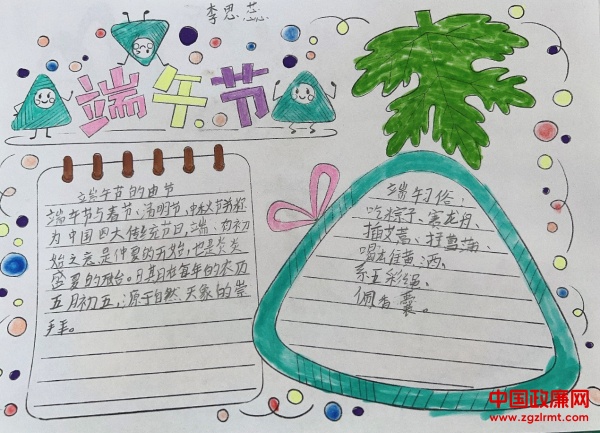 李思蕊
端午节
端午节的由节
端午节与春节、清明节、中秋节并称
为中国四大传统节日,端、为初
始之意是仲夏的开始,也是炎炎
盛夏的开始。日期在每年的农历
五月初五,源于自然天象的崇
拜。
端午习俗:
吃粽子、赛龙舟、
插艾蒿、挂菖蒲、
喝雄黄酒、
系五彩绳、
佩香囊。
中国政廉网
www.zgzlrmt.com